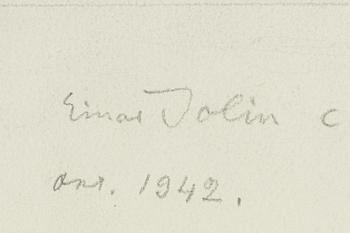 Einar Jolin c
ans. 1942.